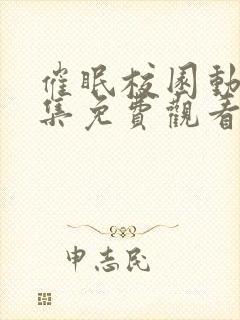 催眠校园動
集免費觀看
申志民